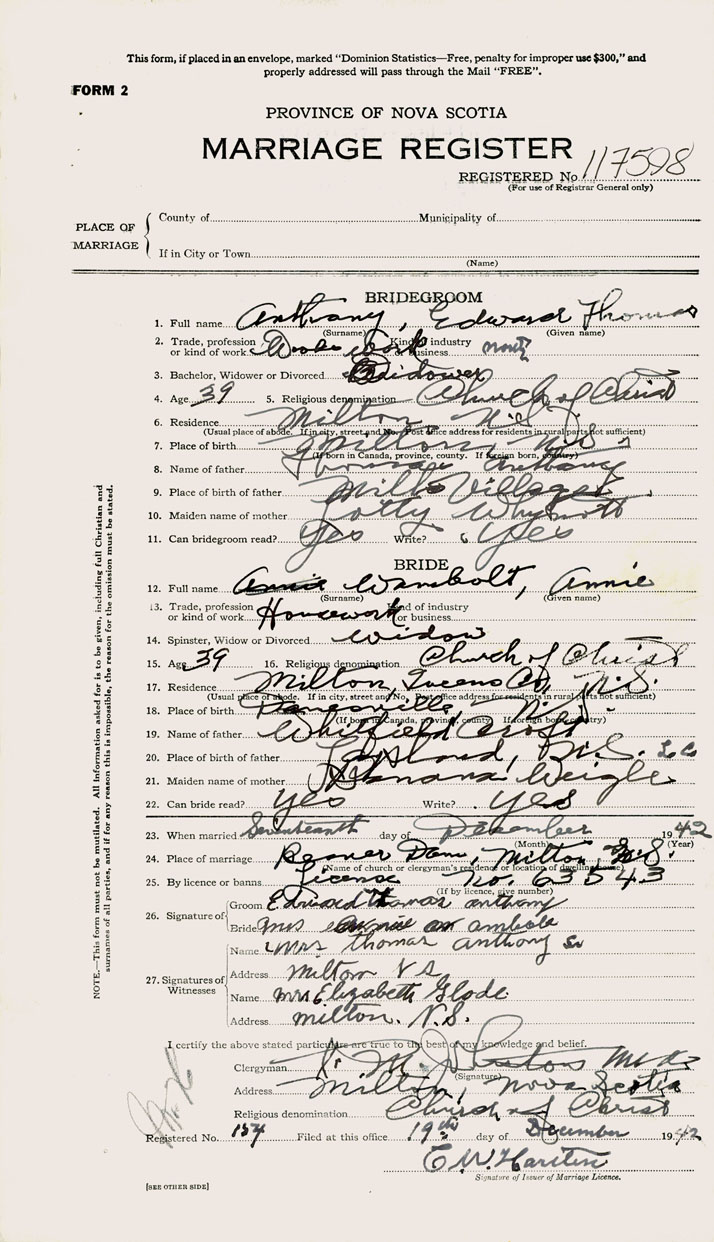 This form, if placed in an envelope, marked "Dominion Statistics—Free, penalty for improper use $300," and
properly addressed will pass through the Mail "FREE".
FORM 2
PROVINCE OF NOVA SCOTIA
MARRIAGE REGISTER
REGISTERED No. 117598
(For use of Registrar General only)
PLACE OF MARRIAGE
County of Municipality of
If in City or Town
(Name)
BRIDEGROOM
1. Full name Anthony, Edward Thomas
(Surname) (Given name)
2. Trade, profession Kind of industry
or kind of work Woods work or business
3. Bachelor, Widower or Divorced Widower
4. Age 39 5. Religious denomination Church of Christ
6. Residence Milton N.S.
(Usual place of abode. If in city, street and No. Post office address for residents in rural parts not sufficient)
7. Place of birth Milton, N.S.
(If born in Canada, province, county. If foreign born, country)
8. Name of father Thomas Anthony
9. Place of birth of father Mill Village
10. Maiden name of mother Lotty Whynott
11. Can bridegroom read? Yes Write? Yes
BRIDE
12. Full name Wambolt, Annie
(Surname) (Given name)
13. Trade, profession Kind of industry
or kind of work Housework or business
14. Spinster, Widow or Divorced Widow
15. Age 39 16. Religious denomination Church of Christ
17. Residence Milton, Queens Co, N.S.
(Usual place of abode. If in city, street and No. Post office address for residents in rural parts not sufficient)
18. Place of birth N.S.
(If born in Canada, province, county. If foreign born, country)
19. Name of father Whitfield Croft
20. Place of birth of father N.S.
21. Maiden name of mother Weigle
22. Can bride read? Yes Write? Yes
23. When married Seventeenth day of December 1942
(Month) (Year)
24. Place of marriage Milton, N.S.
(Name of church or clergyman's residence or location of dwelling house)
25. By licence or banns License No. 63543
(If by licence, give number)
26. Signature of
Groom Edward thomas anthony
Bride mrs
27. Signatures of Witnesses
Name mrs thomas anthony Sr
Address Milton N S
Name mrs Elizabeth Glode
Address milton. N.S.
I certify the above stated particulars are true to the best of my knowledge and belief.
Clergyman
(Signature)
Address Milton, Nova Scotia
Religious denomination Church of Christ
Registered No. 154 Filed at this office 19th day of December 1942
E.W.
Signature of Issuer of Marriage Licence.
[SEE OTHER SIDE]
NOTE.—This form must not be mutilated. All Information asked for is to be given, including full Christian and
surnames of all parties, and if for any reason this is impossible, the reason for the omission must be stated.